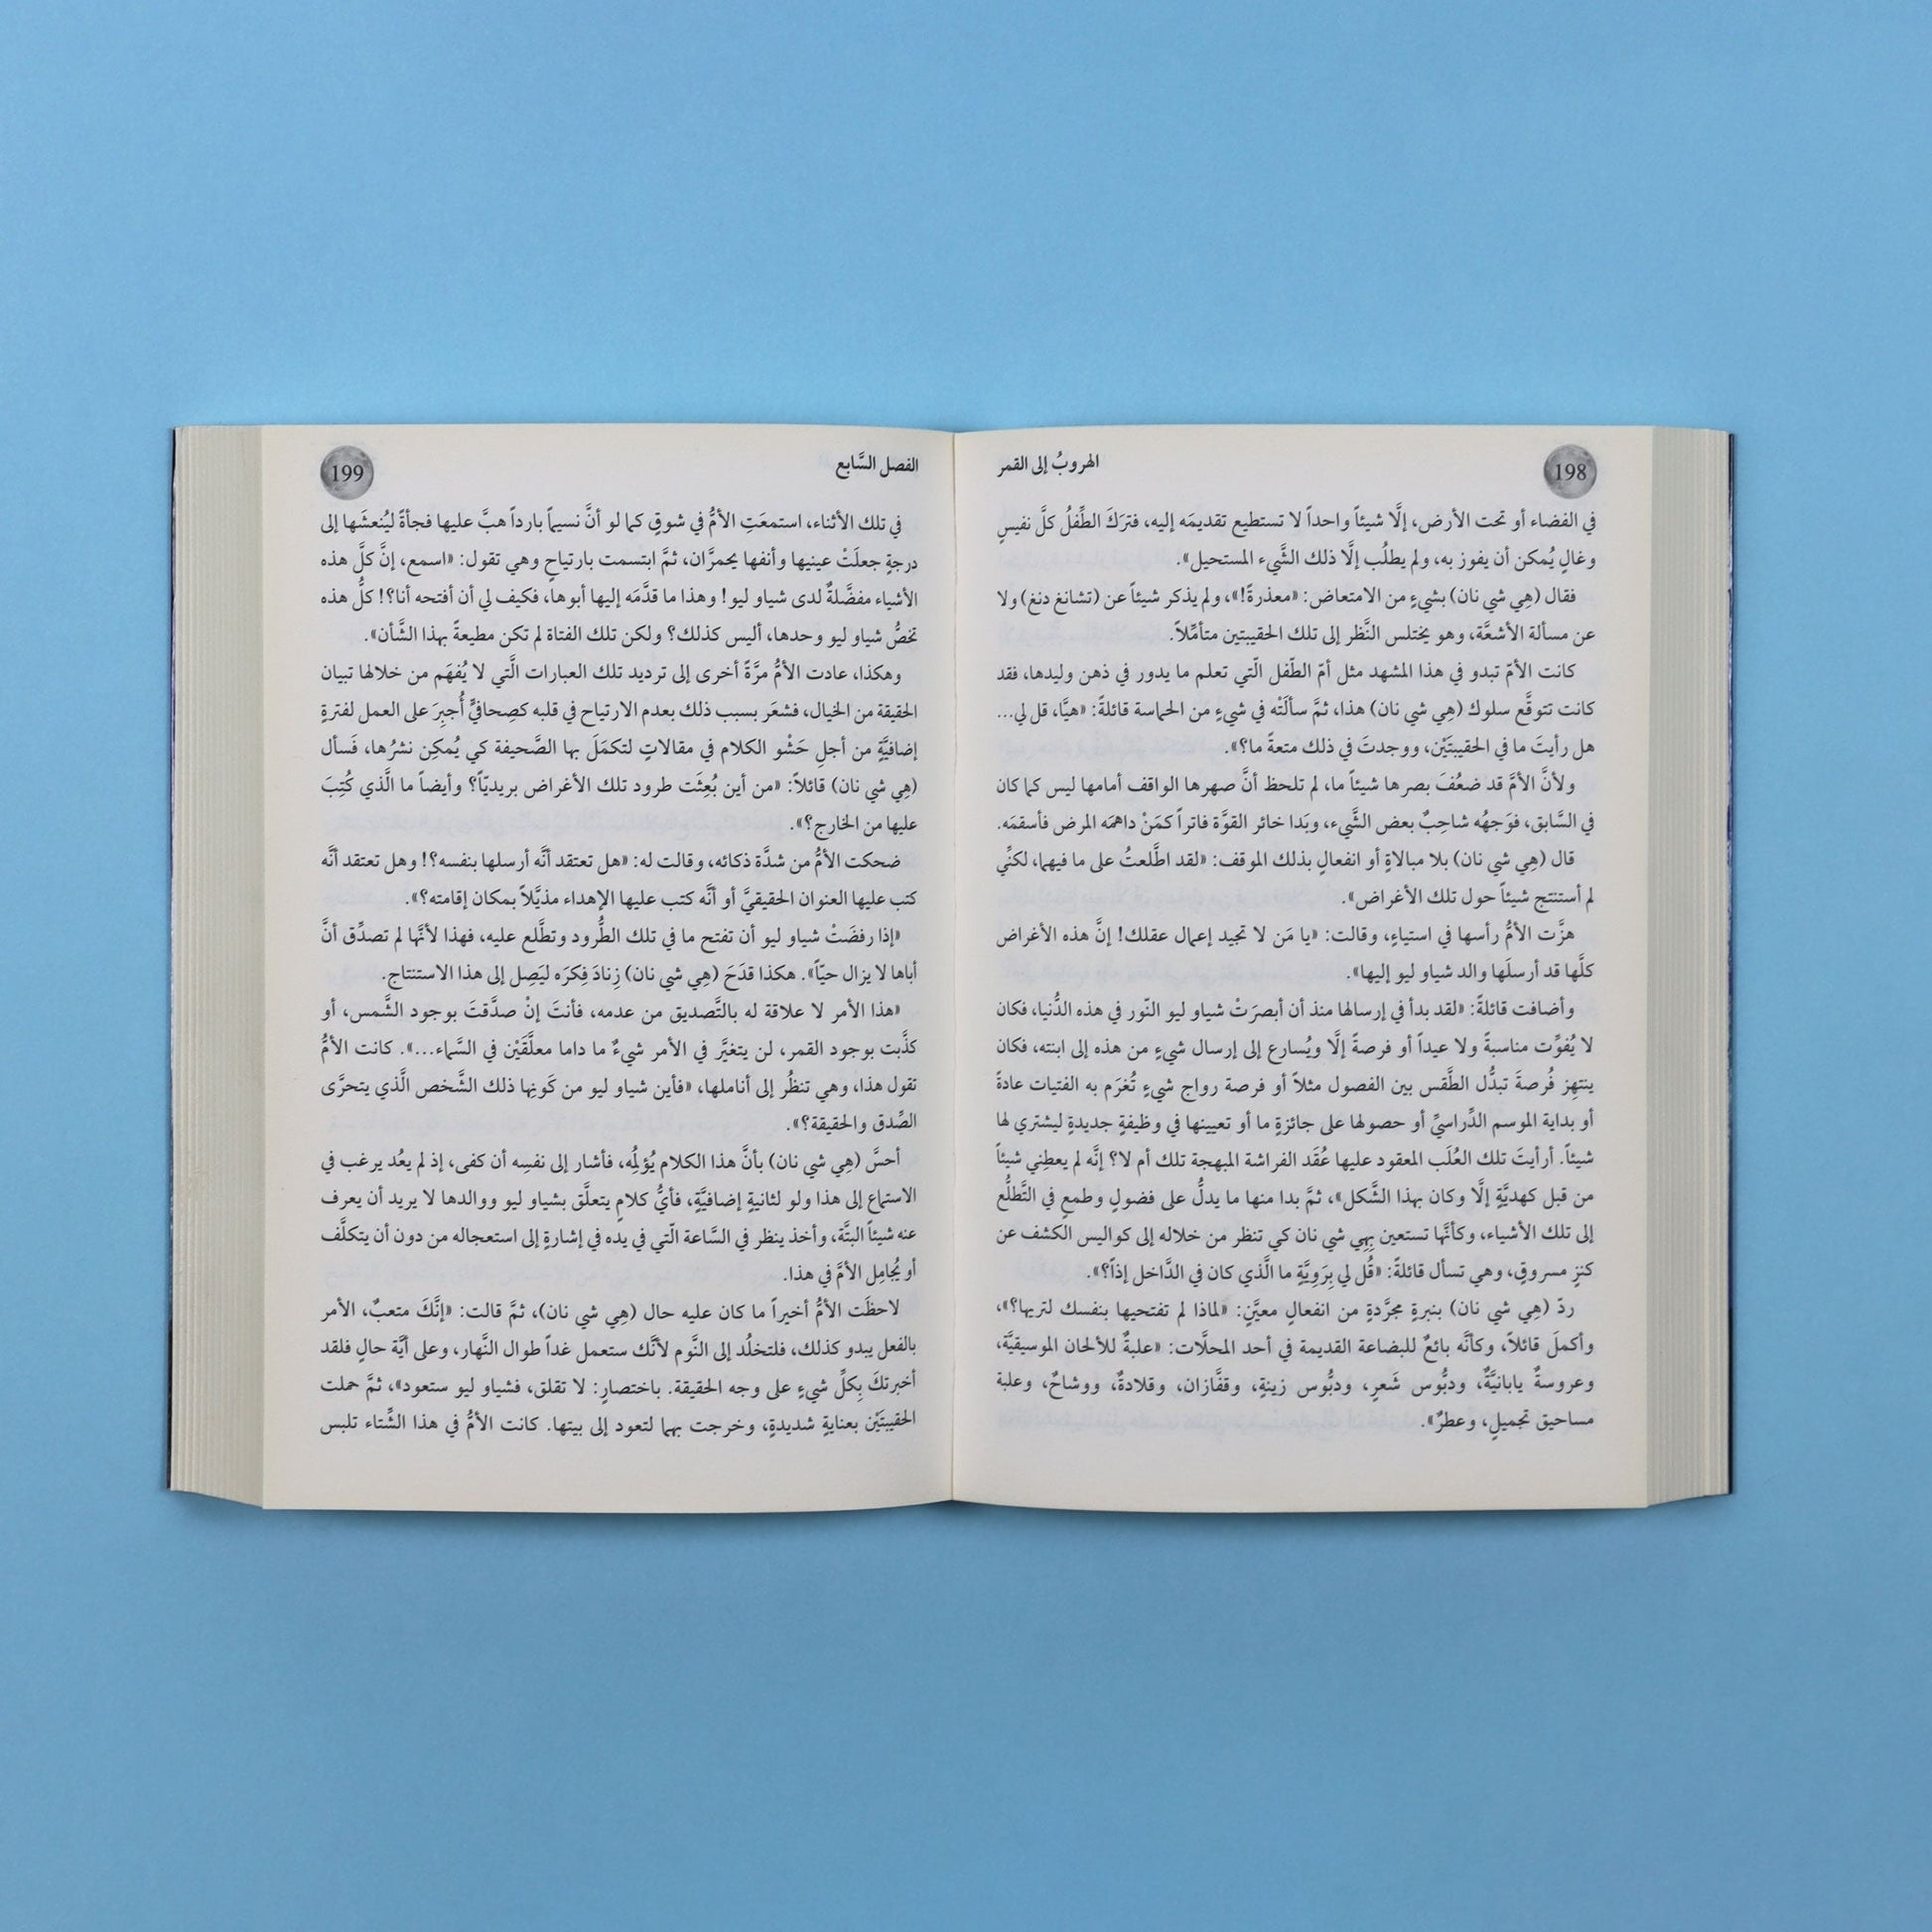 198
الهروبُ إلى القمر
في الفضاء أو تحت الأرض، إلَّا شيئاً واحداً لا تستطيع تقديمَه إليه، فترَكَ الطِّفلُ كلَّ نفيسٍ
وغالٍ يُمكن أن يفوز به، ولم يطلُب إلَّا ذلك الشَّيء المستحيل».
فقال (هِي شي نان) بشيءٍ من الامتعاض: «معذرةً!»، ولم يذكر شيئاً عن (تشانغ دنغ) ولا
عن مسألة الأشعَّة، وهو يختلس النَّظر إلى تلك الحقيبتين متأمِّلاً.
كانت الأمّ تبدو في هذا المشهد مثل أمّ الطّفل الّتي تعلم ما يدور في ذهن وليدها، فقد
كانت تتوقَّع سلوك (هِي شي نان) هذا، ثمَّ سألَتْه في شيءٍ من الحماسة قائلةً: «هيَّا، قل لي...
هل رأيتَ ما في الحقيبتَيْن، ووجدتَ في ذلك متعةً ما؟».
ولأنَّ الأمَّ قد ضعُفَ بصرها شيئاً ما، لم تلحظ أنَّ صهرها الواقف أمامها ليس كما كان
في السَّابق، فوَجهُه شاحِبٌ بعض الشَّيء، وبَدا خائر القوَّة فاتراً كمَنْ داهمَه المرض فأسقمَه.
قال (هِي شي نان) بلا مبالاةٍ أو انفعالٍ بذلك الموقف: «لقد اطَّلعتُ على ما فيهما، لكنِّي
لم أستنتج شيئاً حول تلك الأغراض».
هزَّت الأمُّ رأسها في استياءٍ، وقالت: «يا مَن لا تجيد إعمال عقلك! إنَّ هذه الأغراض
كلَّها قد أرسلَها والد شياو ليو إليها».
وأضافت قائلةً: «لقد بدأ في إرسالها منذ أن أبصرَتْ شياو ليو النّور في هذه الدُّنيا، فكان
لا يُفوِّت مناسبةً ولا عيداً أو فرصةً إلَّا ويُسارع إلى إرسال شيءٍ من هذه إلى ابنته، فكان
ينتهز فُرصةَ تبدُّل الطَّقس بين الفصول مثلاً أو فرصة رواج شيءٍ تُغرَم به الفتيات عادةً
أو بداية الموسم الدِّراسيِّ أو حصولها على جائزةٍ ما أو تعيينها في وظيفةٍ جديدةٍ ليشتري لها
شيئاً. أرأيتَ تلك العُلَب المعقود عليها عُقَد الفراشة المبهجة تلك أم لا؟ إنَّه لم يعطِني شيئاً
من قبل كهديَّةٍ إلَّا وكان بهذا الشَّكل»، ثمَّ بدا منها ما يدلُّ على فضولٍ وطمعٍ في التَّطلُّع
إلى تلك الأشياء، وكأنَّها تستعين بِهِي شي نان كي تنظر من خلاله إلى كواليس الكشف عن
كنزٍ مسروقٍ، وهي تسأل قائلةً: «قُل لي بِرَوِيَّةٍ ما الَّذي كان في الدَّاخل إذاً؟».
ردّ (هِي شي نان) بنبرةٍ مجرَّدةٍ من انفعالٍ معيَّنٍ: «لماذا لم تفتحيها بنفسك لتريها؟»،
وأكملَ قائلاً، وكأنَّه بائعٌ للبضاعة القديمة في أحد المحلَّات: «علبةٌ للألحان الموسيقيَّة،
وعروسةٌ يابانيَّةٌ، ودبُّوس شَعرٍ، ودبُّوس زينةٍ، وقفَّازان، وقلادةٌ، ووشاحٌ، وعلبة
مساحيق تجميلٍ، وعطرٌ».
الفصل السَّابع
199
في تلك الأثناء، استمعَتِ الأمُّ في شوقٍ كما لو أنَّ نسيماً بارداً هبَّ عليها فجأةً ليُنعشَها إلى
درجةٍ جعلَتْ عينيها وأنفها يحمرَّان، ثمَّ ابتسمت بارتياحٍ وهي تقول: «اسمع، إنَّ كلَّ هذه
الأشياء مفضَّلةٌ لدى شياو ليو! وهذا ما قدَّمَه إليها أبوها، فكيف لي أن أفتحه أنا؟! كلُّ هذه
تخصُّ شياو ليو وحدها، أليس كذلك؟ ولكن تلك الفتاة لم تكن مطيعةً بهذا الشَّأن».
وهكذا، عادت الأمُّ مرَّةً أخرى إلى ترديد تلك العبارات الَّتي لا يُفهَم من خلالها تبيان
الحقيقة من الخيال، فشعَر بسبب ذلك بعدم الارتياح في قلبه كصِحافيٍّ أُجبِرَ على العمل لفترةٍ
إضافيَّةٍ من أجلِ حَشْو الكلام في مقالاتٍ لتكمَلَ بها الصَّحيفة كي يُمكِن نشرُها، فَسأل
(هِي شي نان) قائلاً: «من أين بُعِثَت طرود تلك الأغراض بريديّاً؟ وأيضاً ما الَّذي كُتِبَ
عليها من الخارج؟».
ضحكت الأمُّ من شدَّة ذكائه، وقالت له: «هل تعتقد أنَّه أرسلها بنفسه؟! وهل تعتقد أنَّه
كتب عليها العنوان الحقيقيَّ أو أنَّه كتب عليها الإهداء مذيَّلاً بمكان إقامته؟».
«إذا رفضَتْ شياو ليو أن تفتح ما في تلك الطُّرود وتطَّلع عليه، فهذا لأنَّها لم تصدِّق أنَّ
أباها لا يزال حيّاً». هكذا قدَحَ (هِي شي نان) زِنادَ فِكرَه ليَصِل إلى هذا الاستنتاج.
«هذا الأمر لا علاقة له بالتَّصديق من عدمه، فأنتَ إنْ صدَّقتَ بوجود الشَّمس، أو
كذَّبت بوجود القمر، لن يتغيَّر في الأمر شيءٌ ما داما معلَّقَيْن في السَّماء...». كانت الأمُّ
تقول هذا، وهي تنظُر إلى أناملها، «فأين شياو ليو من كَونِها ذلك الشَّخص الَّذي يتحرَّى
الصِّدق والحقيقة؟».
أحسَّ (هِي شي نان) بأنَّ هذا الكلام يُؤلِمُه، فأشار إلى نفسِه أن كفى، إذ لم يعُد يرغب في
الاستماع إلى هذا ولو لثانيةٍ إضافيَّةٍ، فأيُّ كلامٍ يتعلَّق بشياو ليو ووالدها لا يريد أن يعرف
عنه شيئاً البتَّة، وأخذ ينظر في السَّاعة الّتي في يده في إشارةٍ إلى استعجاله من دون أن يتكلَّف
أو يُجامِل الأمَّ في هذا.
لاحظَت الأمُّ أخيراً ما كان عليه حال (هِي شي نان)، ثمَّ قالت: «إنَّكَ متعبٌ، الأمر
بالفعل يبدو كذلك، فلتخلُد إلى النَّوم لأنَّك ستعمل غداً طوال النَّهار، وعلى أيَّة حالٍ فلقد
أخبرتكَ بِكلِّ شيءٍ على وجه الحقيقة. باختصارٍ: لا تقلق، فشياو ليو ستعود»، ثمَّ حملت
الحقيبتَيْن بعنايةٍ شديدةٍ، وخرجت بهما لتعود إلى بيتها. كانت الأمُّ في هذا الشِّتاء تلبس